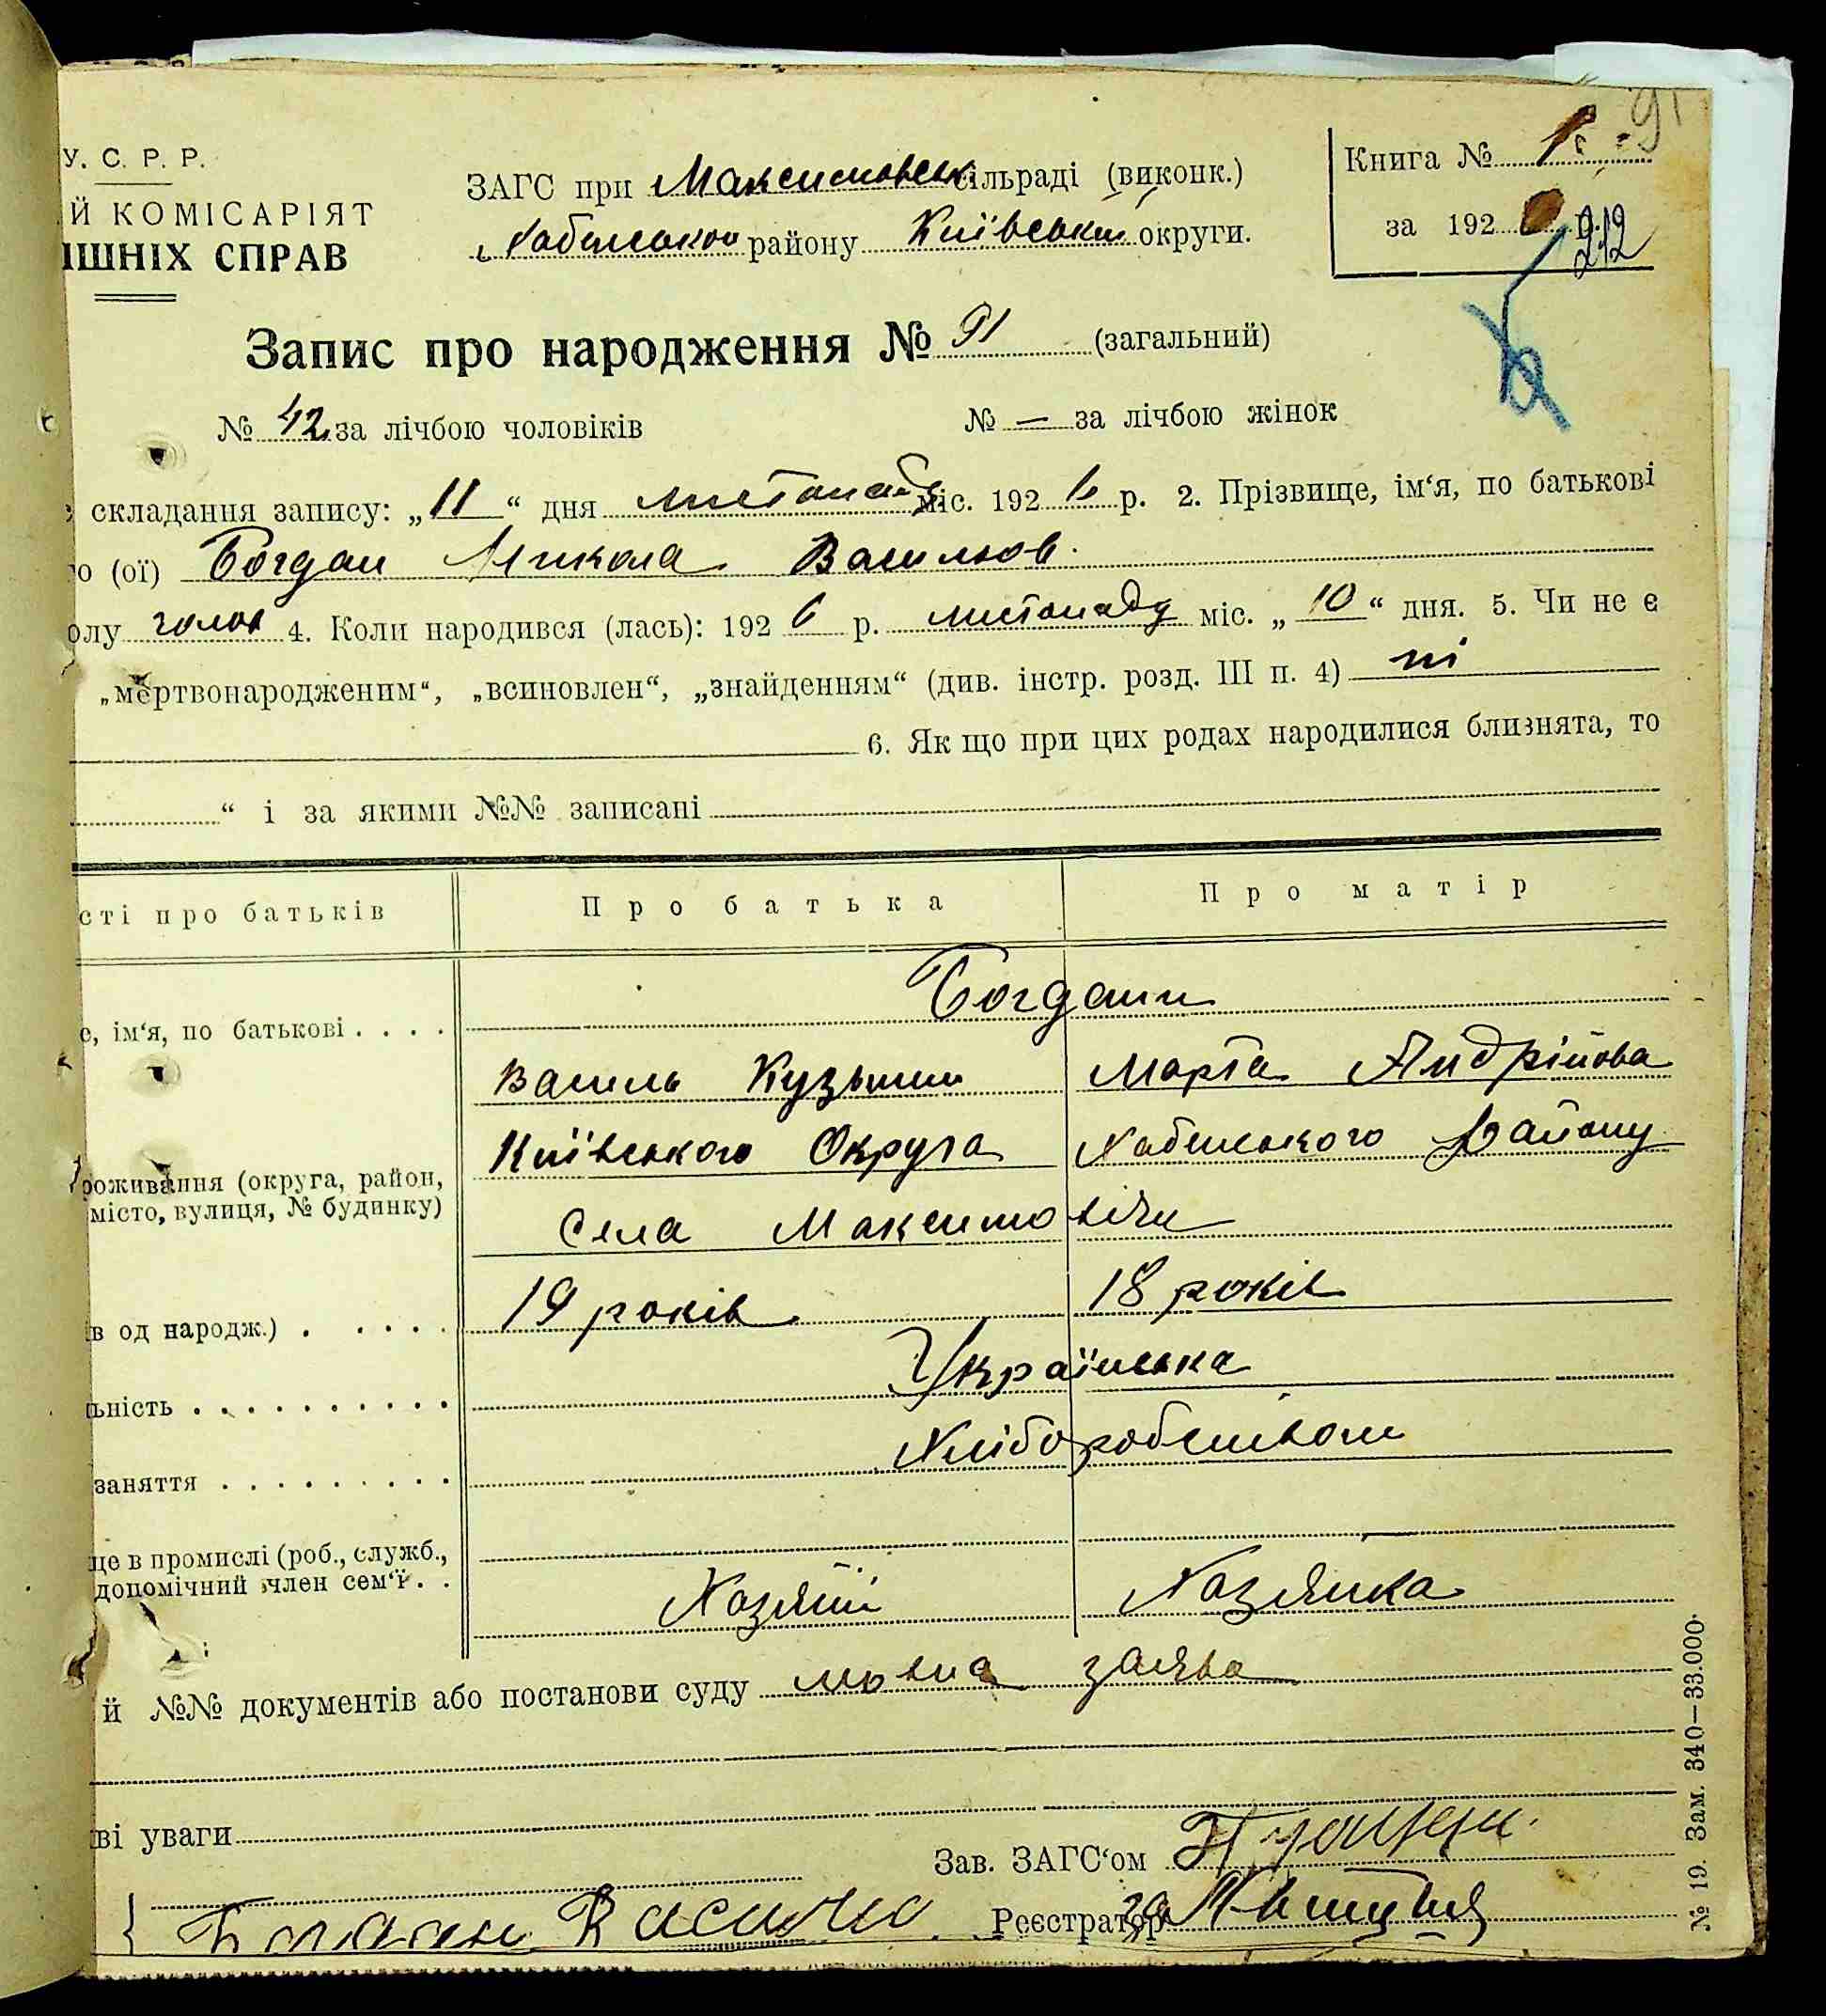 91
У. С. Р. Р.
Й КОМІСАРІЯТ
ІШНІХ СПРАВ
ЗАГС при Максимовськ сільраді (виконк.)
Хабенського району Київської округи.
Книга № 1
за 192 р.
212
Запис про народження № 91 (загальний)
№ 42 за лічбою чоловіків № — за лічбою жінок
складання запису: „11“ дня листопаду міс. 1926 р. 2. Прізвище, ім‘я, по батькові
го (ої) Богдан Микола Васильов.
олу чолов 4. Коли народився (лась): 1926 р. листопаду міс. „10“ дня. 5. Чи не є
„мертвонародженим“, „всиновлен“, „знайденням“ (див. інстр. розд. III п. 4) ні
6. Як що при цих родах народилися близнята, то
“ і за якими №№ записані
сті про батьків Про батька Про матір
Богдани
е, ім‘я, по батькові . . . .
Василь Кузьмин Марта Андрійова
Київського Округа Хабенського Району
роживання (округа, район,
місто, вулиця, № будинку)
Села Максимовичи
ів од народж.) . . . . . 19 років 18 років
льність . . . . . . . . . . Українська
заняття . . . . . . . . . Хліборобством
це в промислі (роб., служб.,
допомічний член сем‘ї . .
Хазяїн Хазяйка
й №№ документів або постанови суду мовна заява
ві уваги
Зав. ЗАГС‘ом
Богдан Василь Реєстратор
№ 19. Зам. 340—33.000.